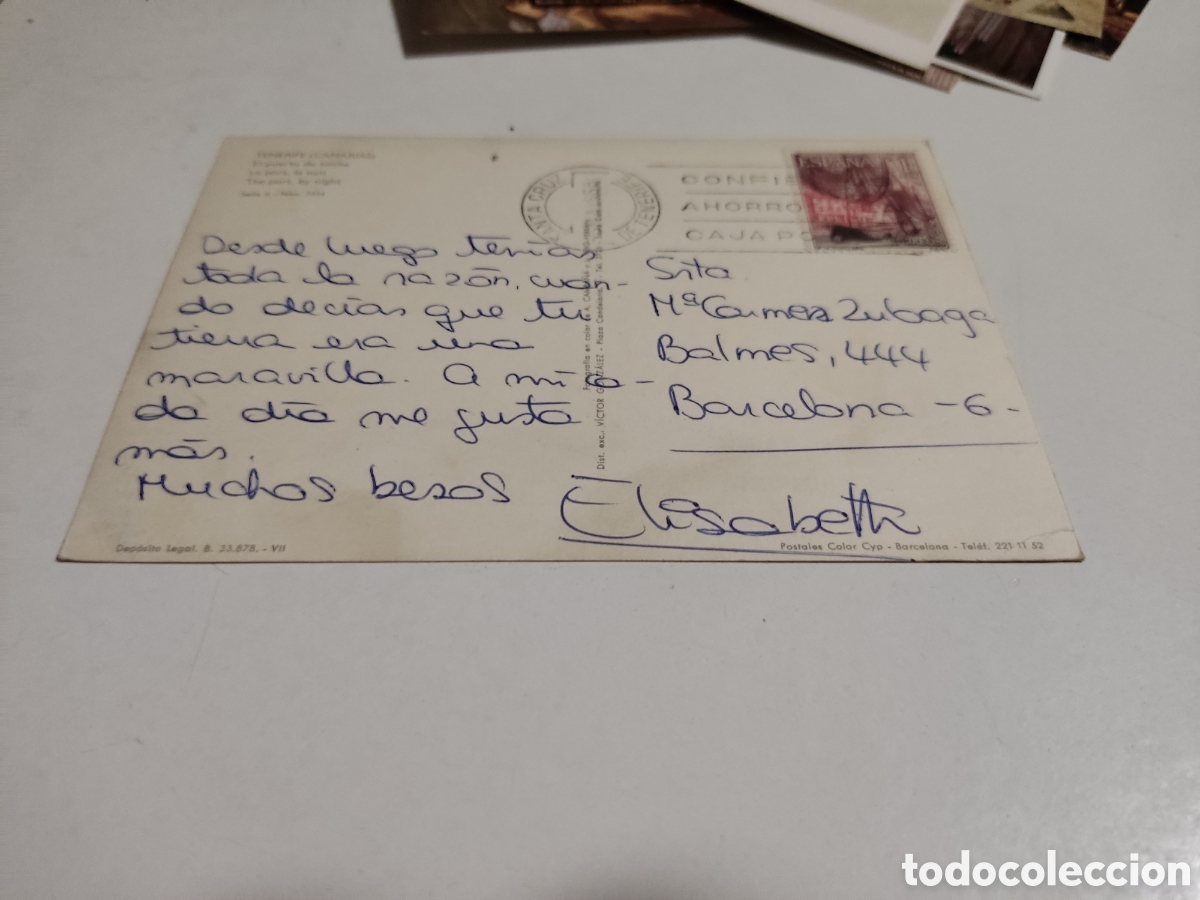 TENERIFE (CANARIAS)
El puerto de noche
Le port, la nuit
The port, by night
SANTA CRUZ
DE TENERIFE
AHORRO
CAJA PO
Desde luego tenías
toda la razón, cuan-
do decías que tu
tierra era una
maravilla. A mi ca-
da día me gusta
más.
Muchos besos
Elisabeth
Srta.
Mª Carmen Zubaga
Balmes, 444
Barcelona -6-
Dist. exc.: VICTOR GONZÁLEZ - Plaza Candelaria
Depósito Legal. B. 33.878. - VII
Postales Color Cyp - Barcelona - Teléf. 221 11 52
todocoleccion